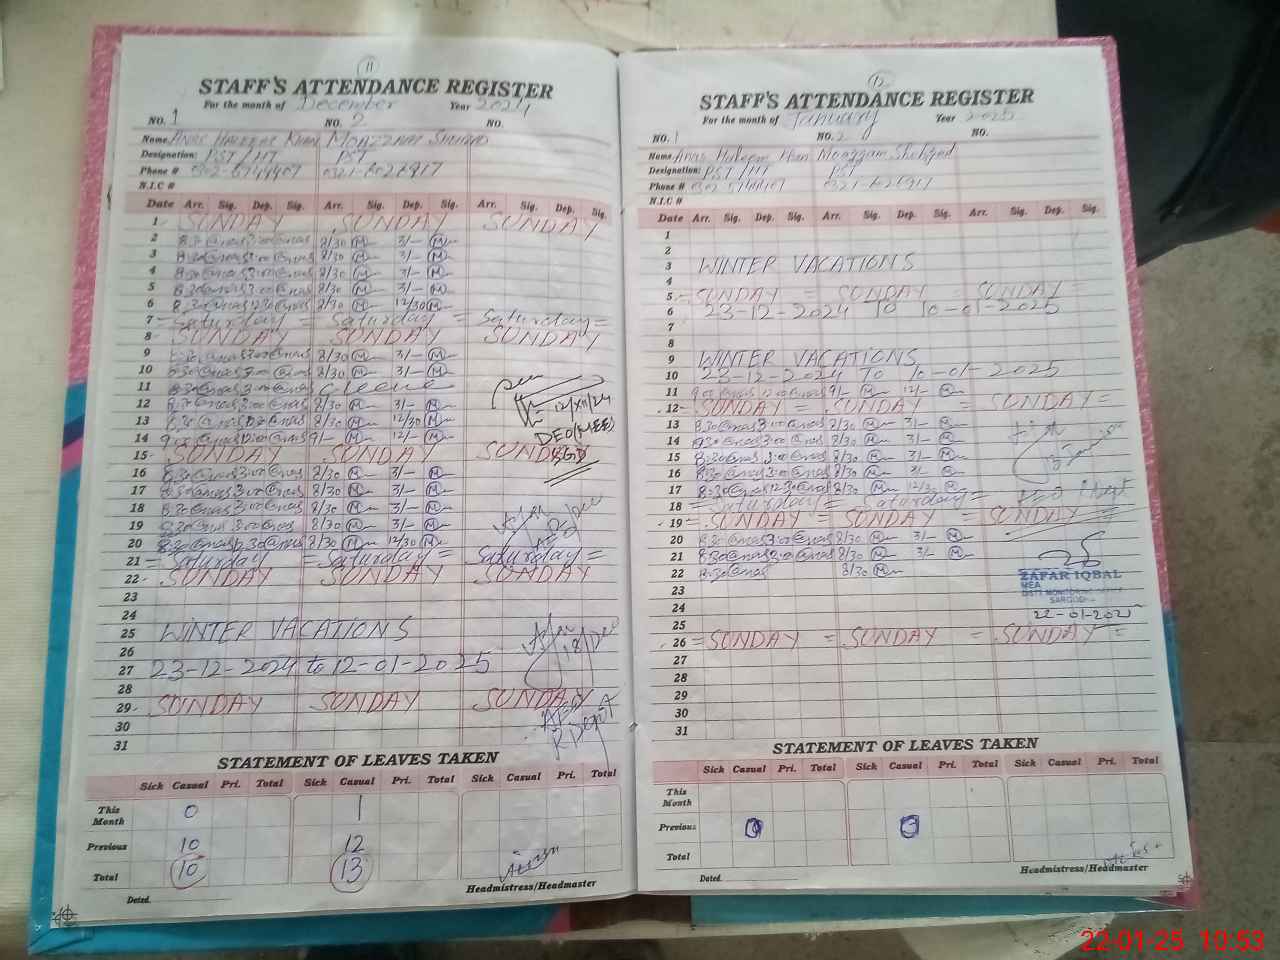 11
STAFF'S ATTENDANCE REGISTER
For the month of December Year 2024
NO. 1 NO. 2 NO.
Name Anas Haleem Khan Moazzam Shahzad
Designation: PST/HT PST
Phone # 0302-6744407
N.I.C #
Date Arr. Sig. Dep. Sig. Arr. Sig. Dep. Sig. Arr. Sig. Dep. Sig.
1 SUNDAY SUNDAY SUNDAY
2 8:30 @nas 3:00 @nas 8/30 M 3/- M
3 8:30 @nas 3:00 @nas 8/30 M 3/- M
4 8:30 @nas 3:00 @nas 8/30 M 3/- M
5 8:30 @nas 3:00 @nas 8/30 M 3/- M
6 8:30 @nas 12:30 @nas 8/30 M 12/30 M
7 = Saturday = Saturday = Saturday =
8 SUNDAY SUNDAY SUNDAY
9 8:30 @nas 3:00 @nas 8/30 M 3/- M
10 8:30 @nas 3:00 @nas 8/30 M 3/- M
11 8:30 @nas 3:00 @nas C leave
12 8:30 @nas 3:00 @nas 8/30 M 3/- M
13 8:30 @nas 12:30 @nas 8/30 M 12/30 M
14 9:00 @nas 12:00 @nas 9/- M 12/- M
15 SUNDAY SUNDAY SUNDAY
16 8:30 @nas 3:00 @nas 8/30 M 3/- M
17 8:30 @nas 3:00 @nas 8/30 M 3/- M
18 8:30 @nas 3:00 @nas 8/30 M 3/- M
19 8:30 @nas 3:00 @nas 8/30 M 3/- M
20 8:30 @nas 12:30 @nas 8/30 M 12/30 M
21 = Saturday = Saturday = Saturday =
22 SUNDAY SUNDAY SUNDAY
23
24
25 WINTER VACATIONS
26
27 23-12-2024 to 12-01-2025
28
29 SUNDAY SUNDAY SUNDAY
30
31
12/XII/24
DEO(MEE)
SGD
18/Dec
STATEMENT OF LEAVES TAKEN
Sick Casual Pri. Total Sick Casual Pri. Total Sick Casual Pri. Total
This Month 0 1
Previous 10 12
Total 10 13
Dated.
Headmistress/Headmaster
12
STAFF'S ATTENDANCE REGISTER
For the month of January Year 2025
NO. 1 NO. 2 NO.
Name Anas Haleem Khan Moazzam Shahzad
Designation: PST/HT PST
Phone # 0302 6744407
N.I.C #
Date Arr. Sig. Dep. Sig. Arr. Sig. Dep. Sig. Arr. Sig. Dep. Sig.
1
2
3 WINTER VACATIONS
4
5 = SUNDAY = SUNDAY = SUNDAY =
6 23-12-2024 To 10-01-2025
7
8
9 WINTER VACATIONS
10 23-12-2024 TO 10-01-2025
11 9:00 @nas 12:00 @nas 9/- M 12/- M
12 SUNDAY = SUNDAY = SUNDAY =
13 8:30 @nas 3:00 @nas 8/30 M 3/- M
14 8:30 @nas 3:00 @nas 8/30 M 3/- M
15 8:30 @nas 3:00 @nas 8/30 M 3/- M
16 8:30 @nas 3:00 @nas 8/30 M 3/- M
17 8:30 @nas 12:30 @nas 8/30 M M
18 = Saturday = Saturday =
19 = SUNDAY = SUNDAY = SUNDAY =
20 8:30 @nas 3:00 @nas 8/30 M 3/- M
21 8:30 @nas 3:00 @nas 8/30 M 3/- M
22 8:30 @nas 8/30 M
23
24
25
26 = SUNDAY = SUNDAY = SUNDAY =
27
28
29
30
31
ZAFAR IQBAL
MEA
22-01-2025
STATEMENT OF LEAVES TAKEN
Sick Casual Pri. Total Sick Casual Pri. Total Sick Casual Pri. Total
This Month
Previous 0 0
Total
Dated.
Headmistress/Headmaster
22-01-25 10:53